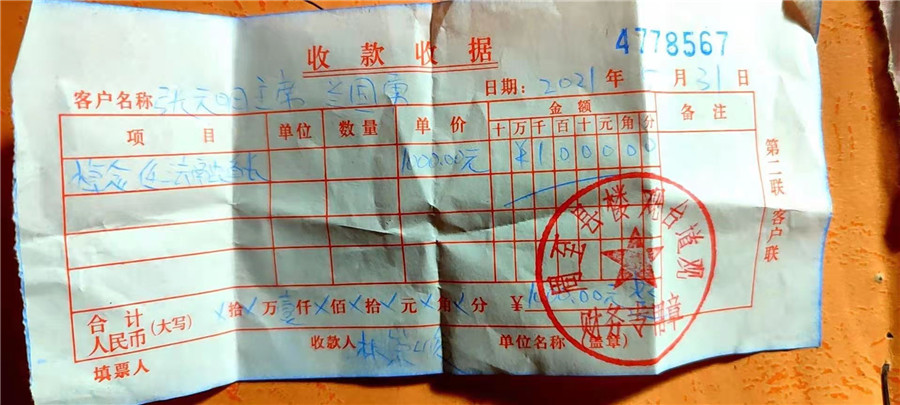 收款收据
4778567
客户名称 张
日期: 2021年 月31日
项目 单位 数量 单价 金额 备注
十万千百十元角分
1000.00元 ¥100000
合计人民币(大写) 拾 万壹仟 佰 拾 元 角 分 ¥1000.00元
填票人 收款人 林 单位名称(盖章)
第二联 客户联
周至县楼观台道观
财务专用章